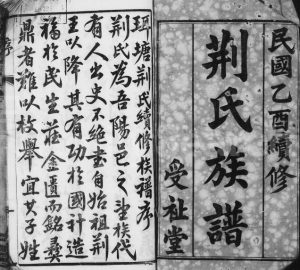 民國乙酉續修
荆氏族譜
受祉堂
珥塘荆氏續修族譜序
荆氏為吾陽邑之望族代
有人出史不絕書自始祖荆
王以降其有功於國計造
福於民生茲金遺而銘彝
鼎者難以枚舉宜其子姓
序